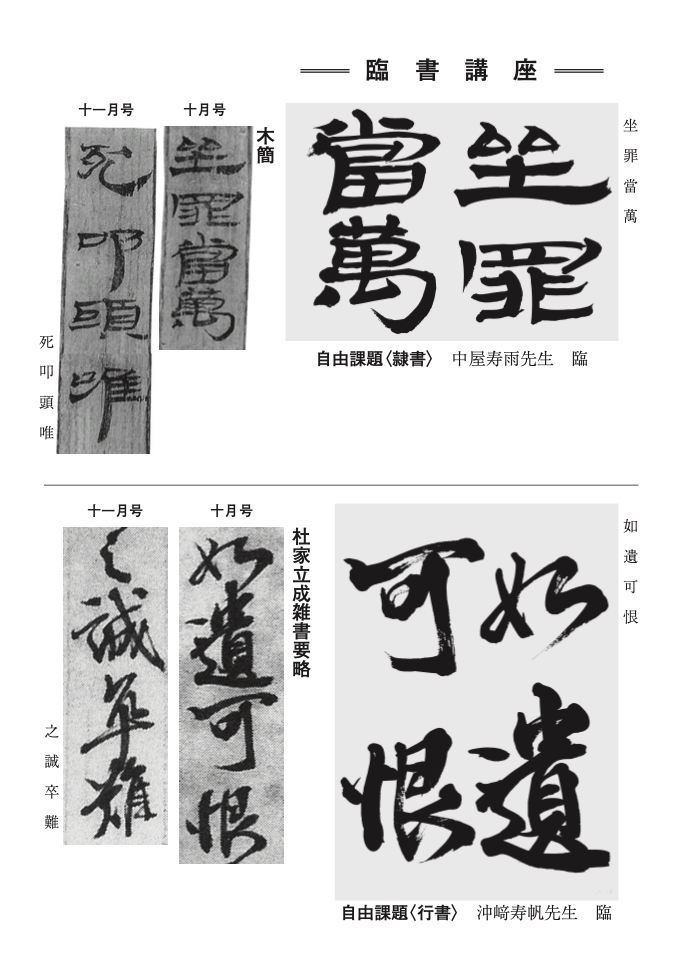 臨書講座
坐罪當萬
坐罪
當萬
自由課題〈隷書〉 中屋寿雨先生 臨
木簡
十月号
坐罪當萬
十一月号
死叩頭唯
死叩頭唯
如遺可恨
如遺
可恨
自由課題〈行書〉 沖﨑寿帆先生 臨
杜家立成雑書要略
十月号
如遺可恨
十一月号
之誠卒難
之誠卒難